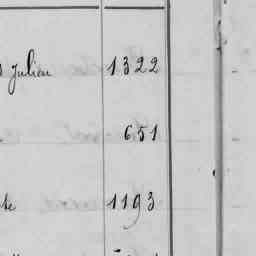 Julien 1322
651
1193